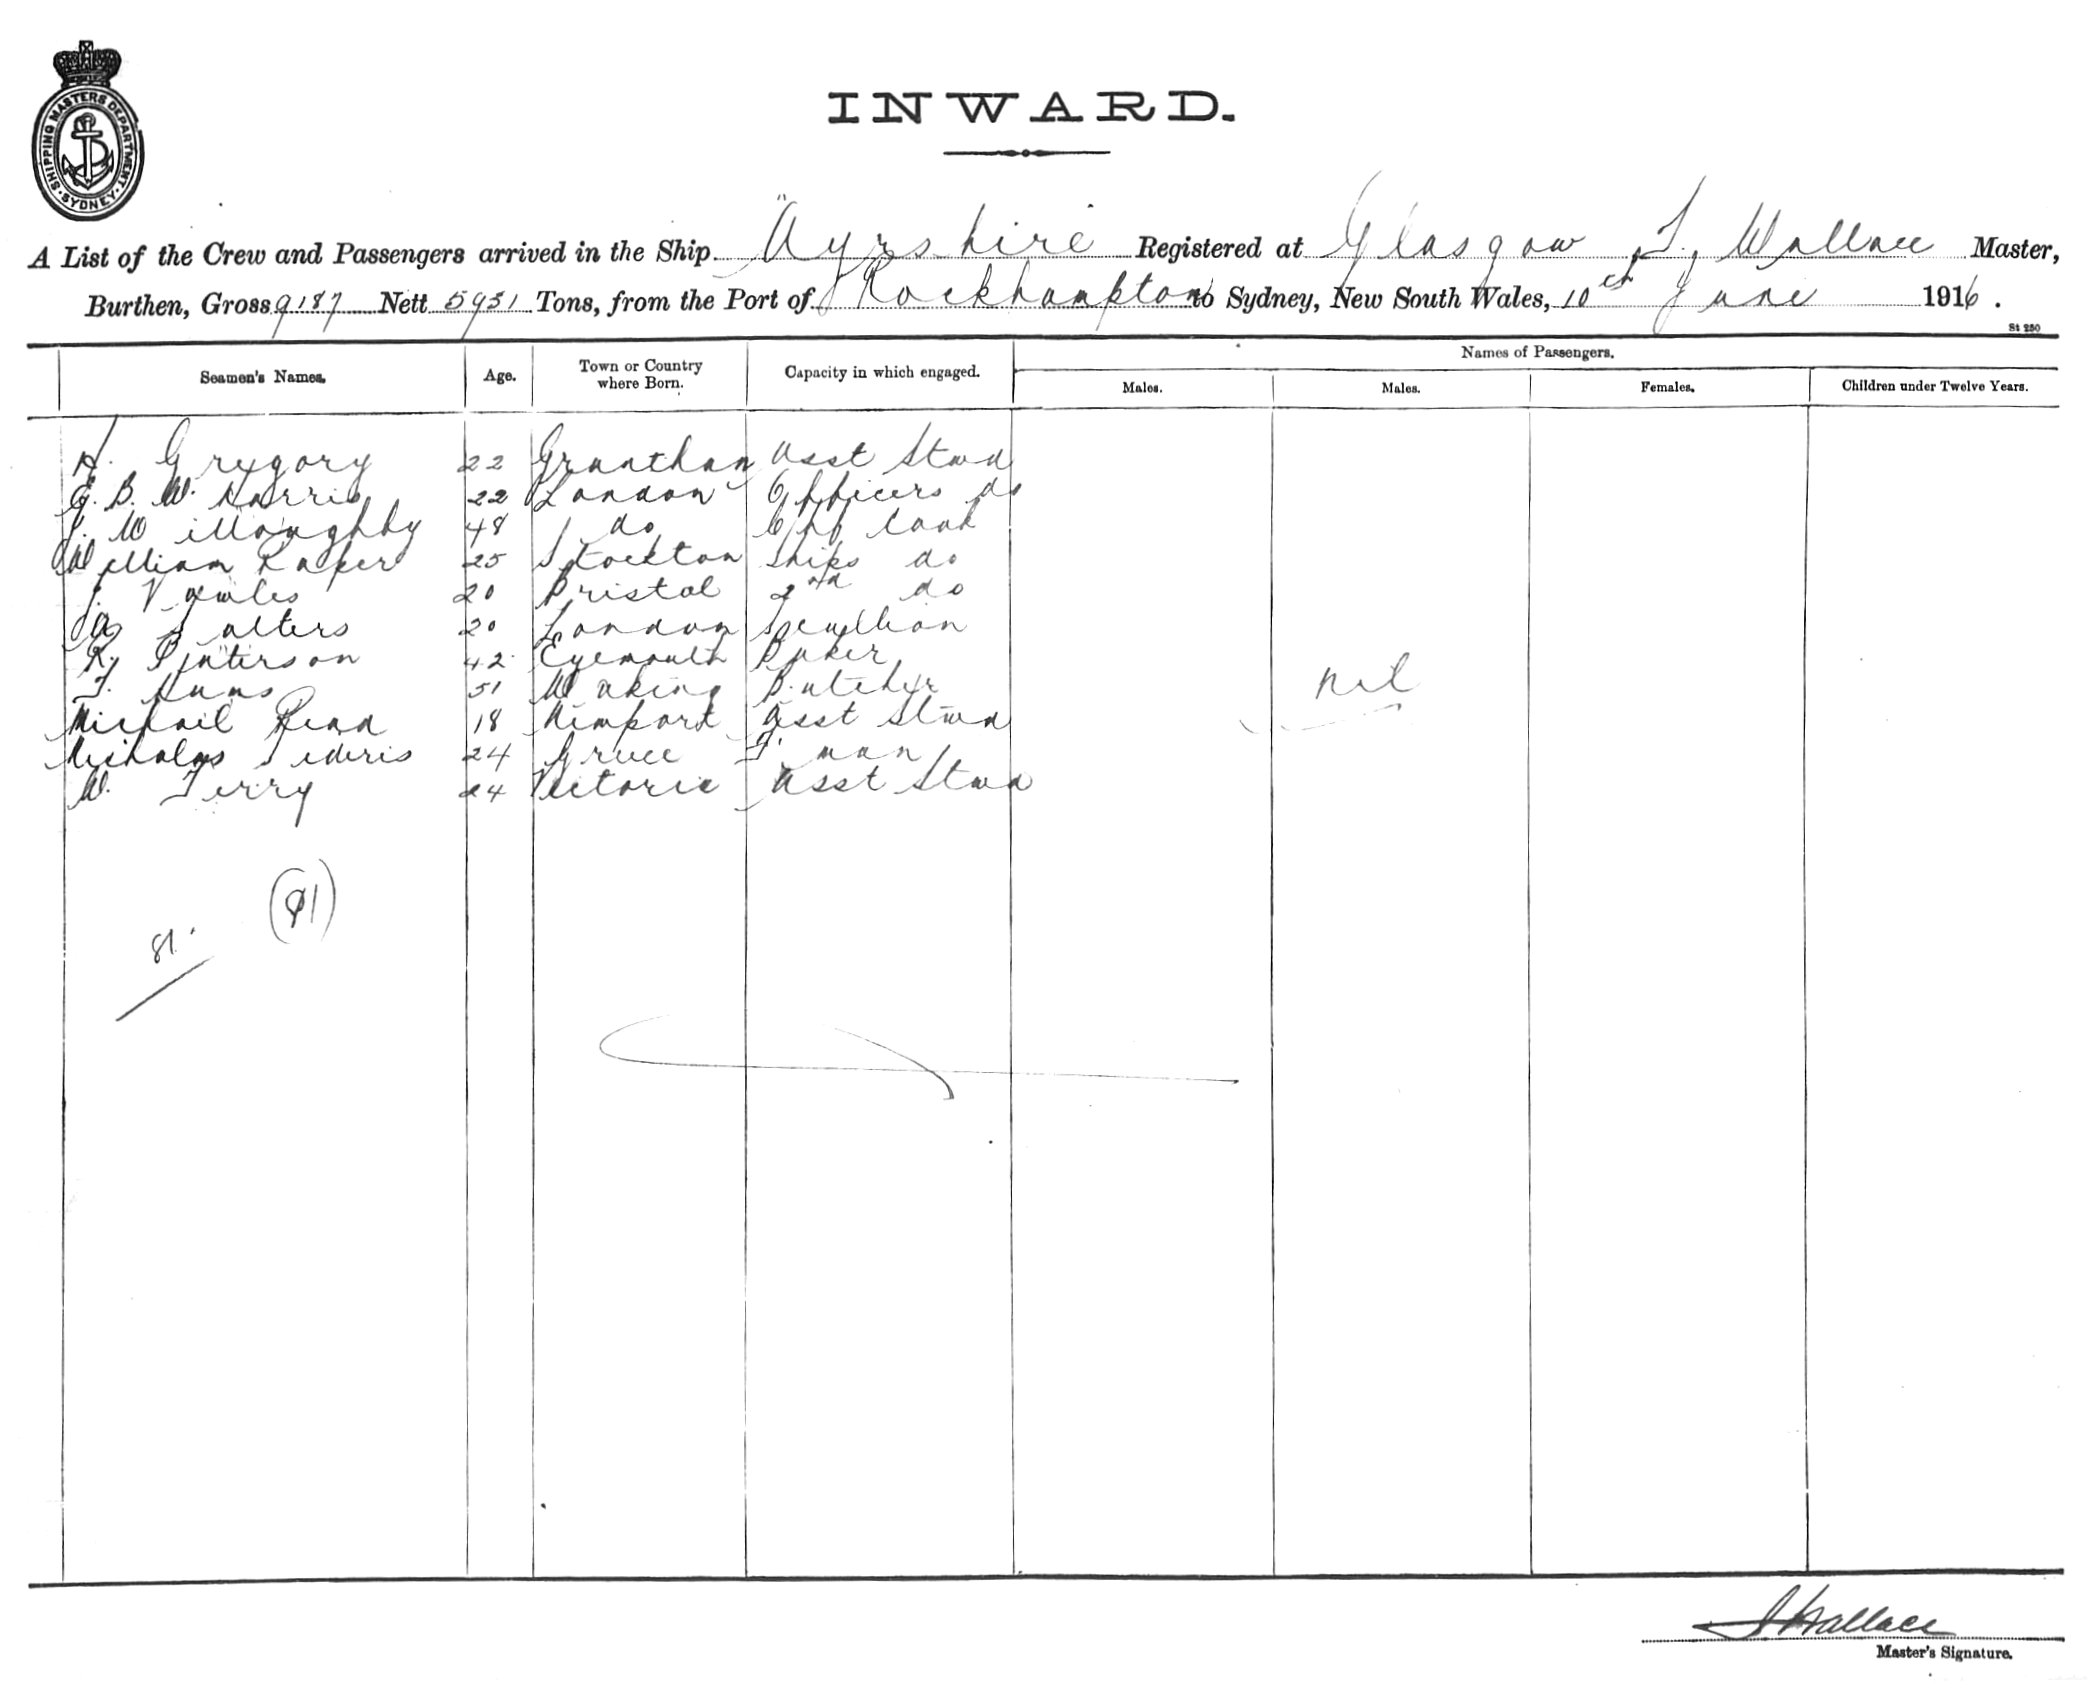 SHIPPING MASTERS DEPARTMENT
SYDNEY
INWARD.
A List of the Crew and Passengers arrived in the Ship "Ayrshire Registered at Glasgow, T. Wallace Master,
Burthen, Gross 9187 Nett 5951 Tons, from the Port of Rockhampton to Sydney, New South Wales, 10th June 1916.
St 250
Seamen's Names. Age. Town or Country where Born. Capacity in which engaged. Names of Passengers.
Males. Males. Females. Children under Twelve Years.
H. Gregory 22 Grantham Asst Stwd
G. B. W. Harris 22 London Officers do
J. Willoughby 48 do Chf Cook
William Raper 25 Stockton Ships do
J. Vowles 20 Bristol 2nd do
A. Salters 20 London Scullion
R. Peterson 42 Eyemouth Baker
T. 51 Woking Butcher
nil
Michail Read 18 Newport Asst Stwd
Nicholas Sideris 24 Greece F' man
W. Terry 24 Victoria Asst Stwd
(81)
81.
Wallace
Master's Signature.